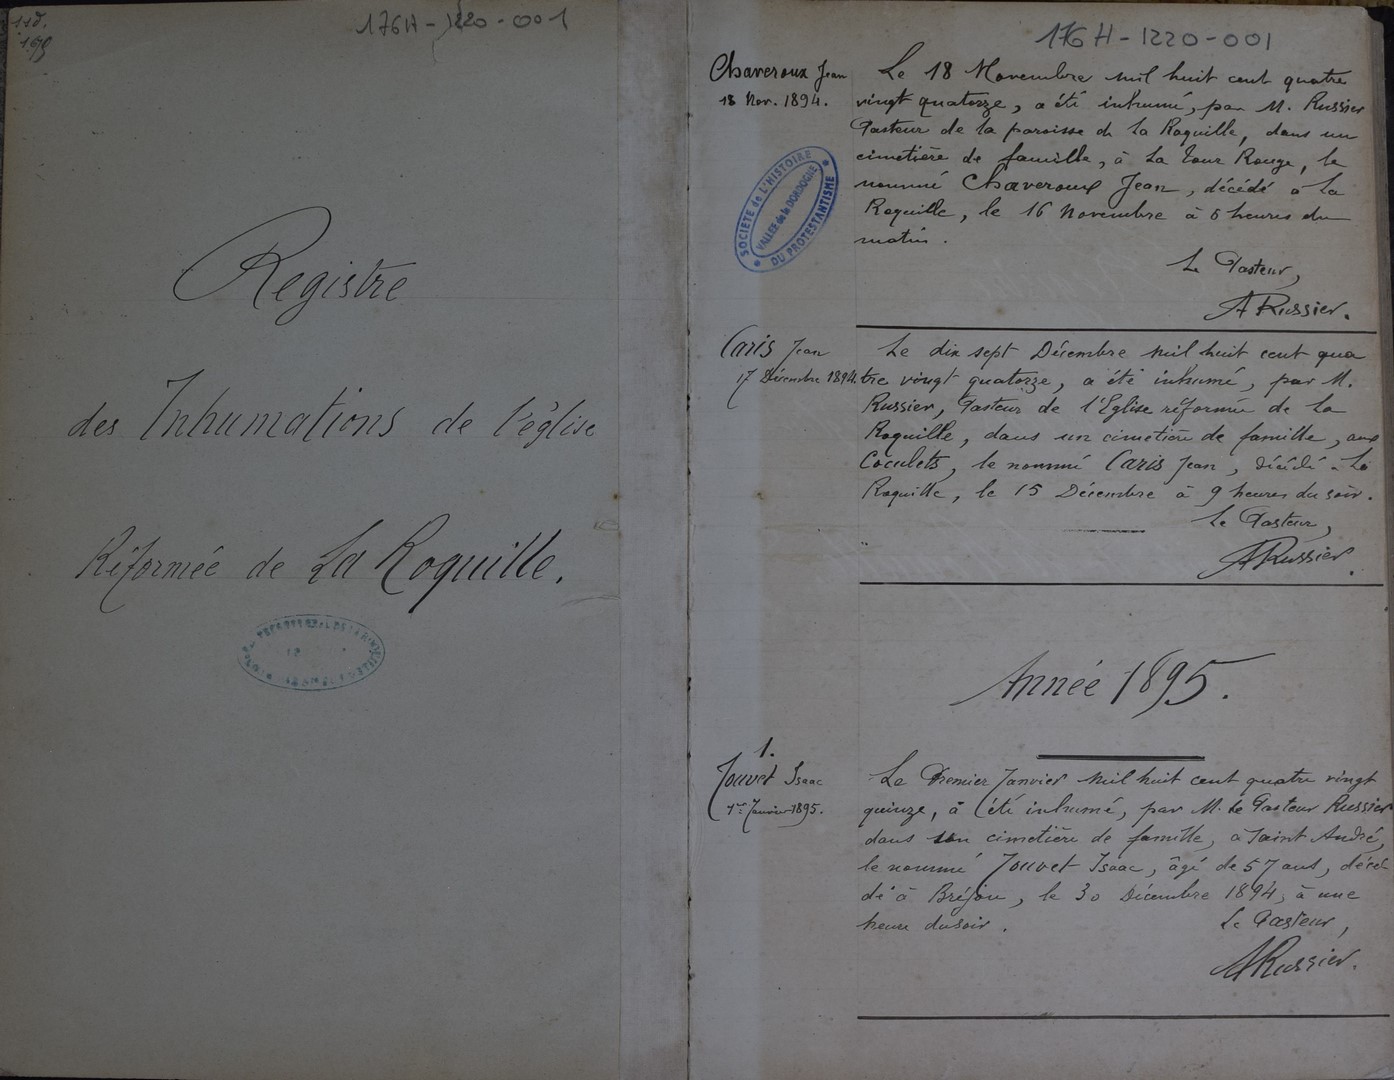 176H-1220-001
Registre
des Inhumations de l'église
Réformée de La Roquille.
176H-1220-001
Chaveroux Jean
18 Nov. 1894.
SOCIETE de L'HISTOIRE
VALLEE de la DORDOGNE
DU PROTESTANTISME
Le 18 Novembre mil huit cent quatre
vingt quatorze, a été inhumé, par M. Russier
Pasteur de la paroisse de La Roquille, dans un
cimetière de famille, à La Tour Rouge, le
nommé Chaveroux Jean, décédé à La
Roquille, le 16 Novembre à 6 heures du
matin.
Le Pasteur,
A Russier.
Caris Jean
17 Décembre 1894.
Le dix sept Décembre mil huit cent qua
tre vingt quatorze, a été inhumé, par M.
Russier, Pasteur de l'Eglise réformée de La
Roquille, dans un cimetière de famille, aux
Coculets, le nommé Caris Jean, décédé à La
Roquille, le 15 Décembre à 9 heures du soir.
Le Pasteur,
A Russier.
Année 1895.
1.
Jouvet Isaac
1er Janvier 1895.
Le Premier Janvier mil huit cent quatre vingt
quinze, à été inhumé, par M. le Pasteur Russier
dans son cimetière de famille, à Saint André,
le nommé Jouvet Isaac, âgé de 57 ans, décé-
dé à Bréjou, le 30 Décembre 1894, à une
heure du soir.
Le Pasteur,
A Russier.